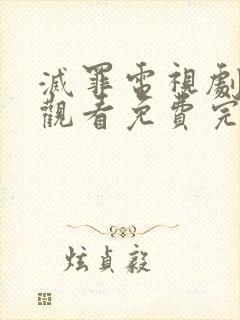 滅罪電視劇
觀看免費完
炫貞毅